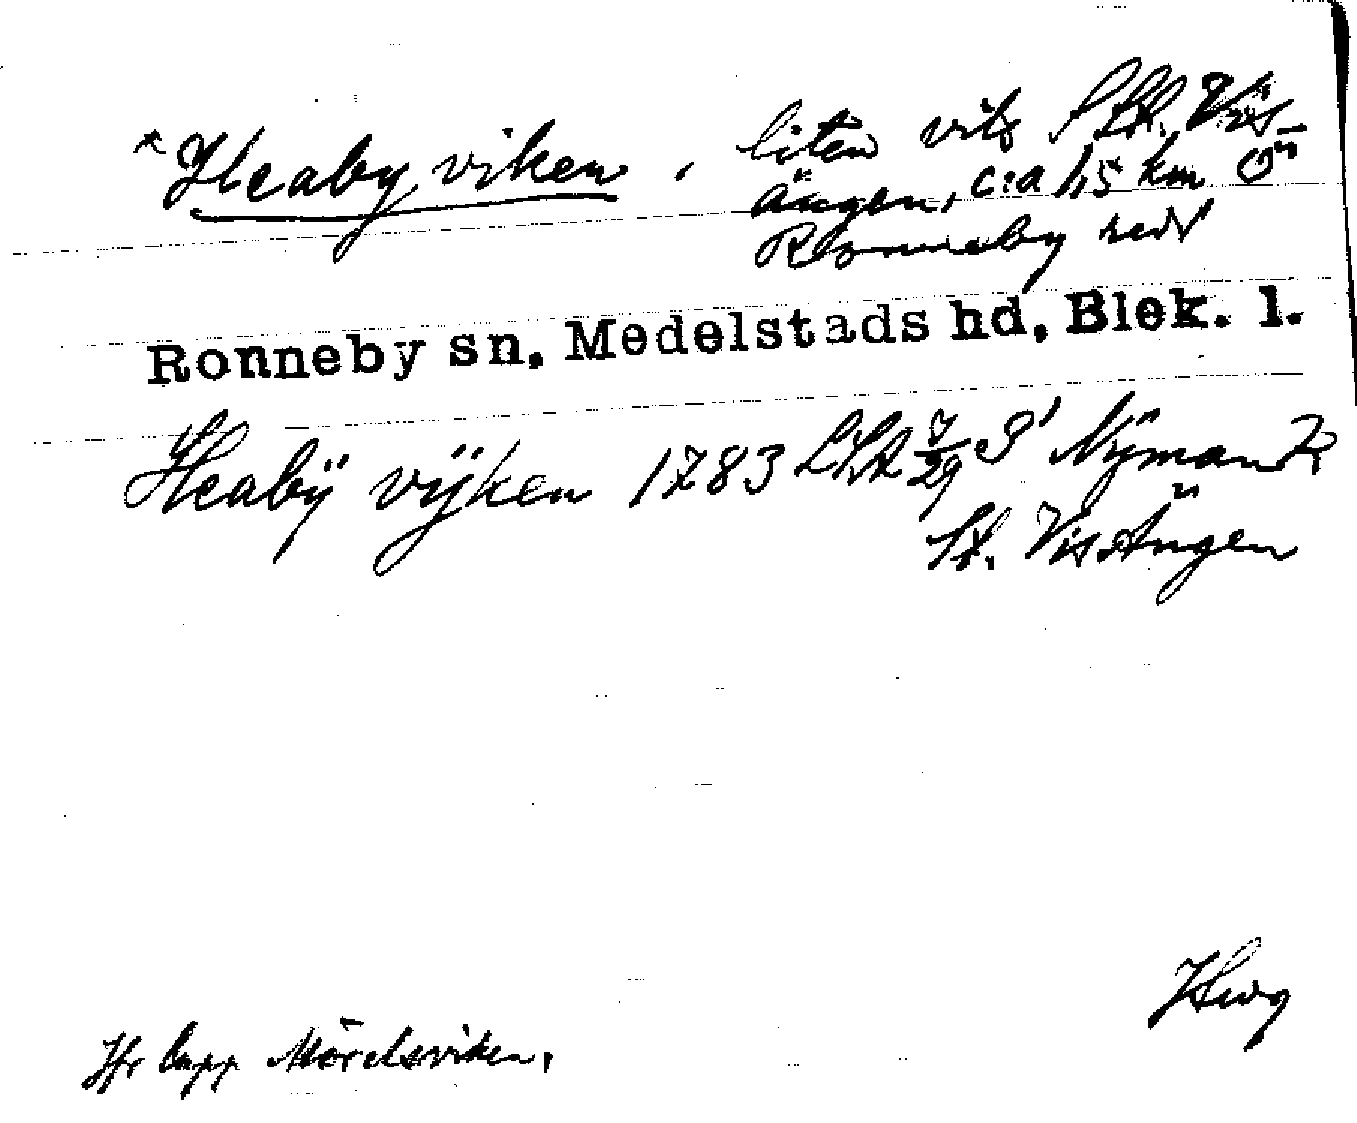 * Heaby viken, liten vik S St. Vis-
ängen, c:a 1,5 km Ö
Ronneby redd
Ronneby sn, Medelstads hd, Blek. l.
Heabÿ vÿken 1783 LSA 7/29 S' Nÿman
St. VisÄngen
Jfr lapp Mördsviken.